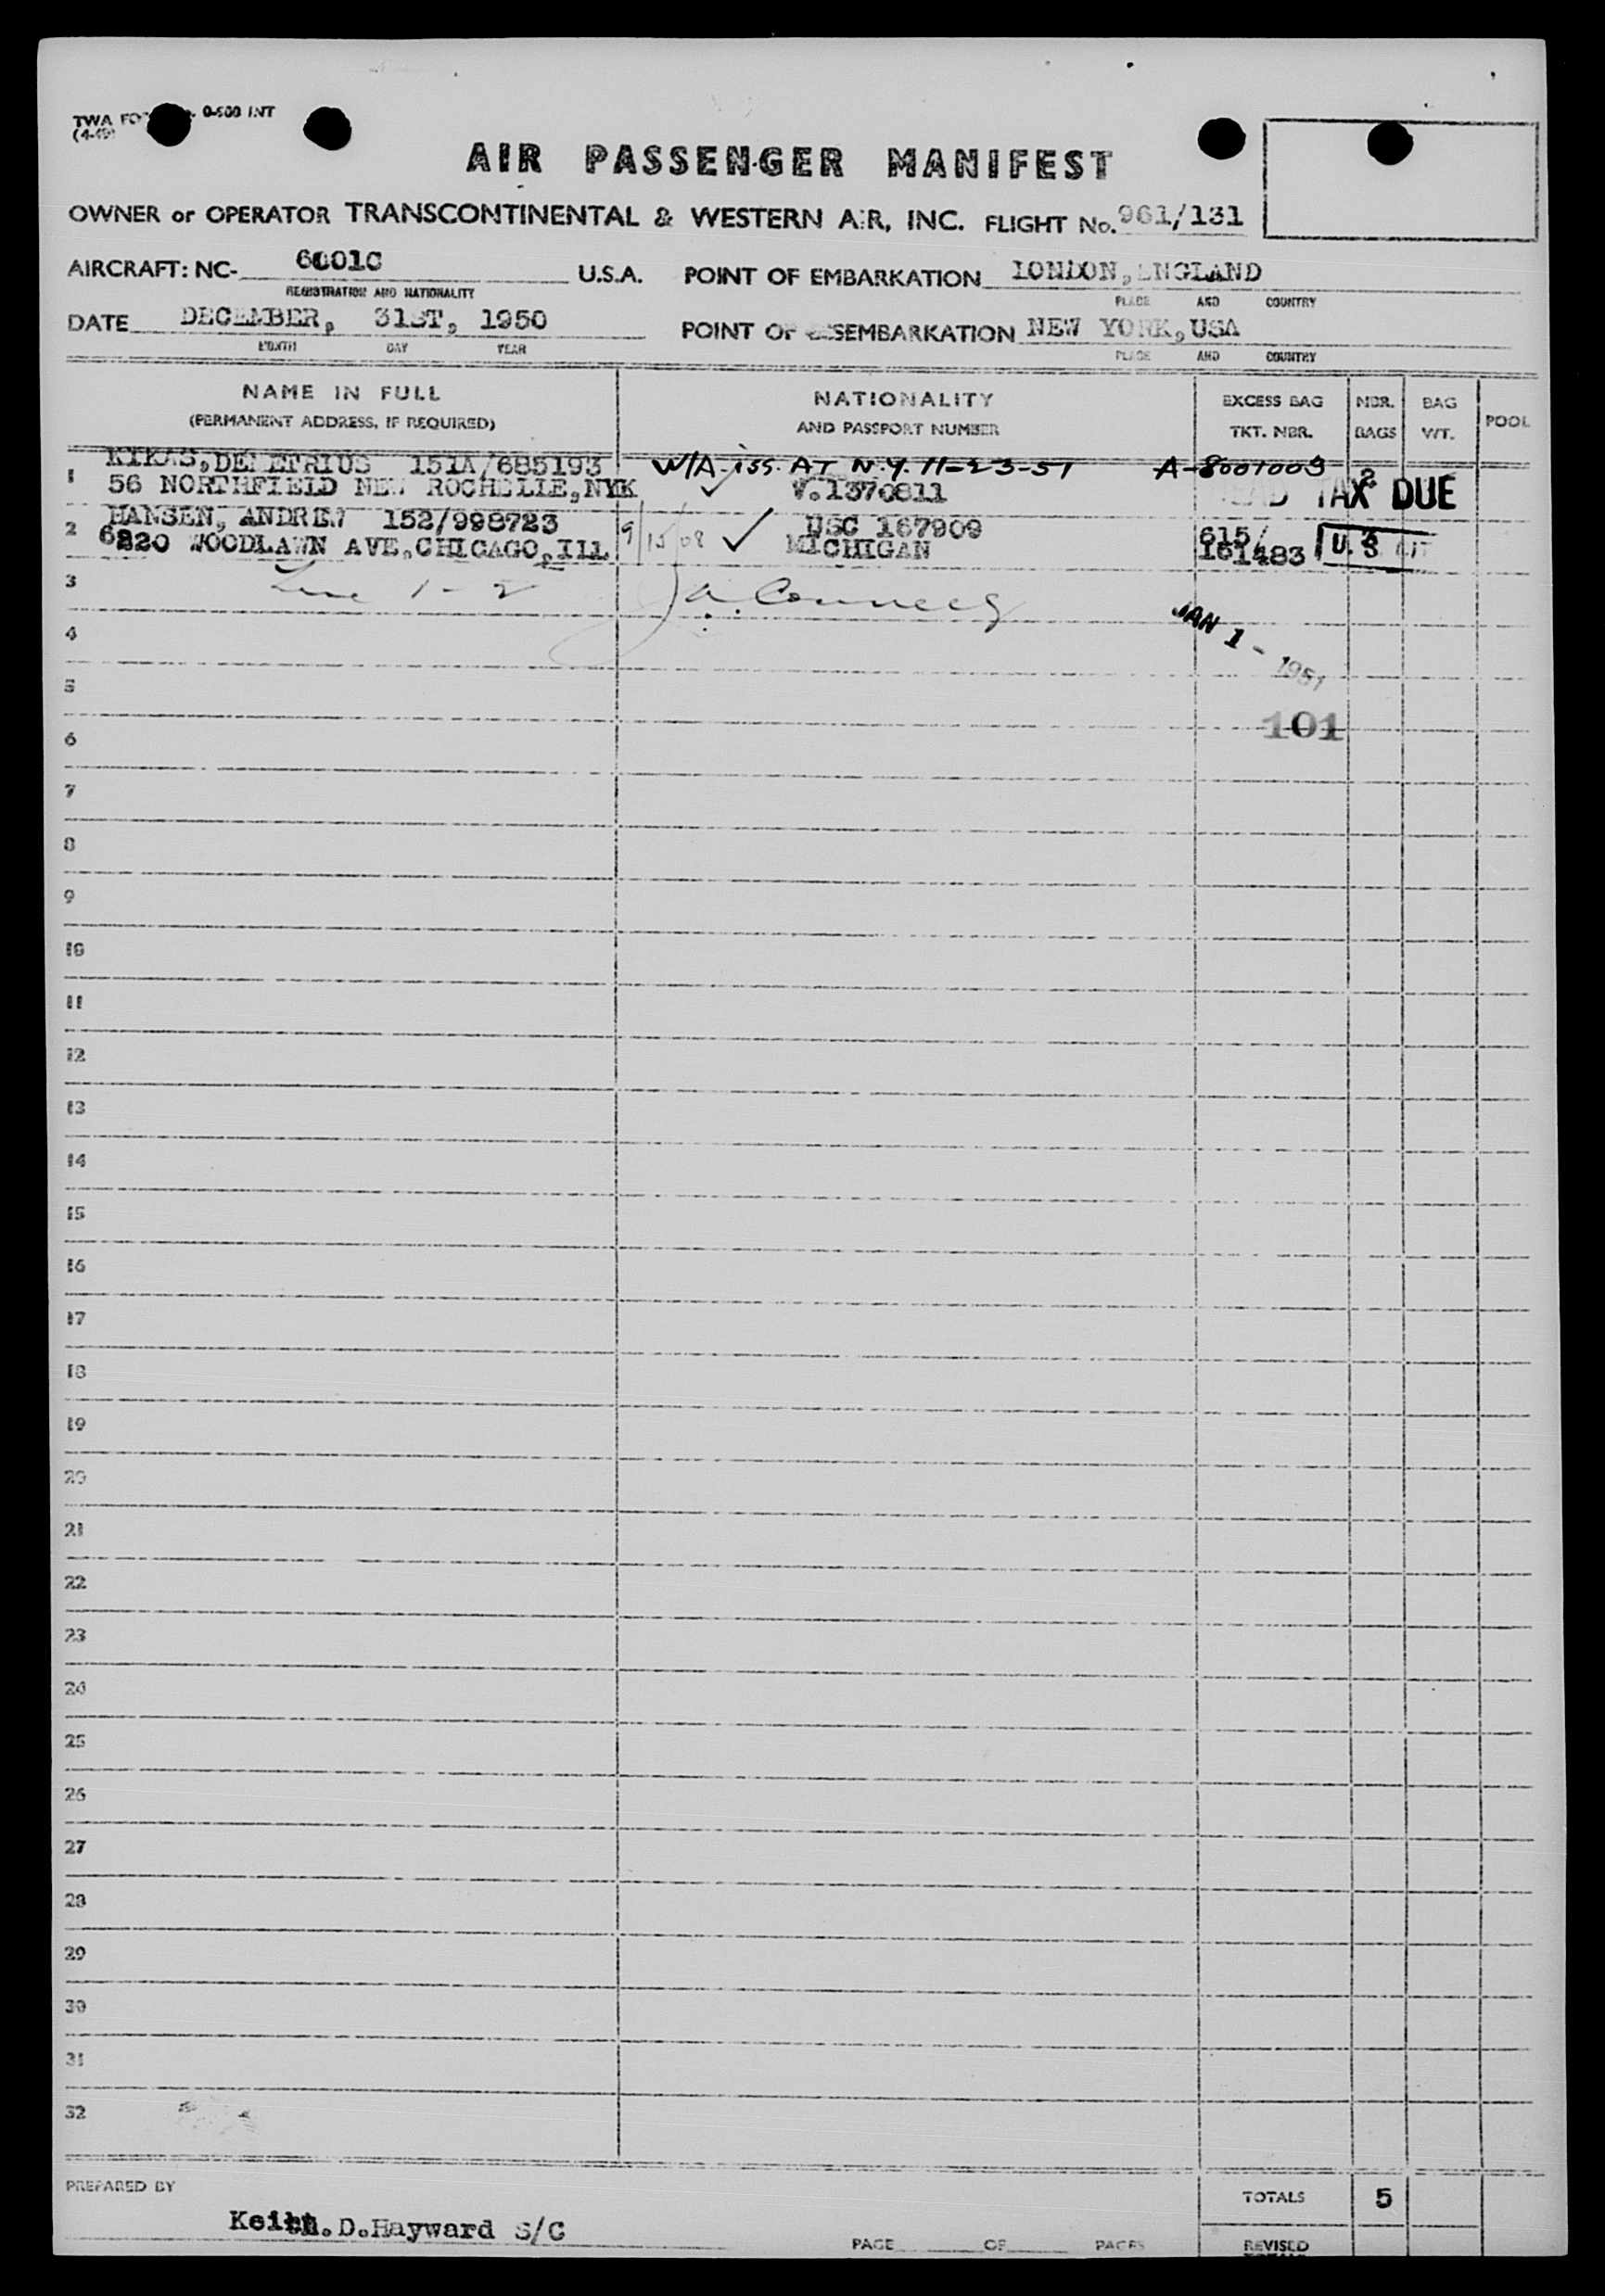 TWA 0-500 INT
(4-49)
AIR PASSENGER MANIFEST
OWNER or OPERATOR TRANSCONTINENTAL & WESTERN AIR, INC. FLIGHT No. 961/131
AIRCRAFT: NC- 6001C U.S.A. POINT OF EMBARKATION LONDON, ENGLAND
REGISTRATION AND NATIONALITY PLACE AND COUNTRY
DATE DECEMBER, 31ST, 1950 POINT OF DISEMBARKATION NEW YORK, USA
MONTH DAY YEAR PLACE AND COUNTRY
NAME IN FULL NATIONALITY EXCESS BAG NBR. BAG POOL
(PERMANENT ADDRESS, IF REQUIRED) AND PASSPORT NUMBER TKT. NBR. BAGS WT.
DEMETRIUS 151A/685193 W/A iss. AT N.Y. 11-23-51 A-8001003
1 56 NORTHFIELD NEW ROCHELLE, NYK V.1370811 2 TAX DUE
HANSEN, ANDREW 152/998723 9/15/08 USC 167909 615/
2 6220 WOODLAWN AVE, CHICAGO, Ill MICHIGAN 161483 3 U.S. CIT
3 Line 1-2
JAN 1 - 1951
4
5
101
6
7
8
9
10
11
12
13
14
15
16
17
18
19
20
21
22
23
24
25
26
27
28
29
30
31
32
PREPARED BY TOTALS 5
D.Hayward S/C
PAGE OF PAGES REVISED